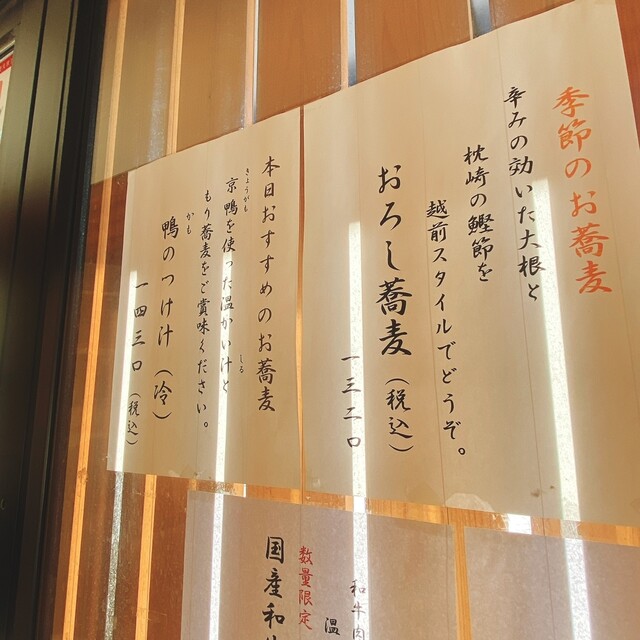 季節のお蕎麦
辛みの効いた大根と
枕崎の鰹節を
越前スタイルでどうぞ。
おろし蕎麦（税込）
一三二〇
本日おすすめのお蕎麦
きょうがも
京鴨を使った温かい汁と
しる
もり蕎麦をご賞味ください。
かも
鴨のつけ汁（冷）
一四三〇（税込）
和牛肉
温
数量限定
国産和牛